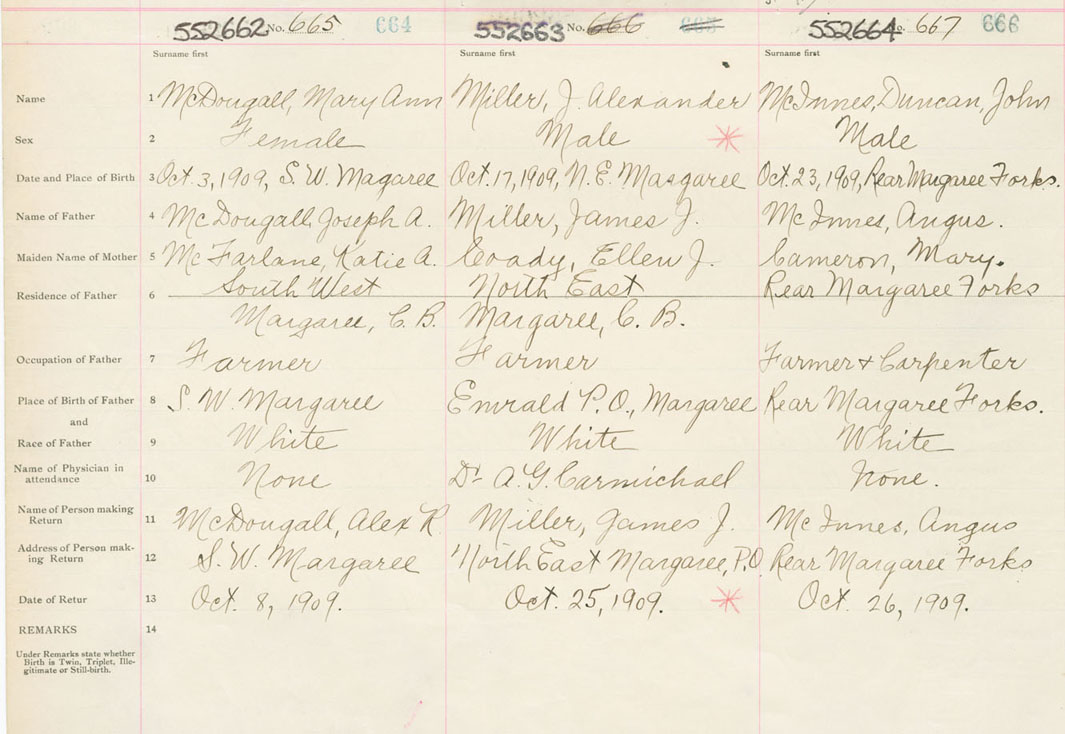 552662 No. 665 664 552663 No. 666 665 552664 o. 667 666
Surname first Surname first Surname first
Name 1 McDougall, Mary Ann Miller, J. Alexander McInnes, Duncan, John
Sex 2 Female Male Male
Date and Place of Birth 3 Oct. 3, 1909, S. W. Magaree Oct. 17, 1909, N. E. Margaree Oct. 23, 1909, Rear Margaree Forks.
Name of Father 4 McDougall, Joseph A. Miller, James J. McInnes, Angus.
Maiden Name of Mother 5 McFarlane, Katie A. Coady, Ellen J. Cameron, Mary.
Residence of Father 6 South West North East Rear Margaree Forks
Margaree, C. B. Margaree, C. B.
Occupation of Father 7 Farmer Farmer Farmer & Carpenter
Place of Birth of Father 8 S. W. Margaree Emrald P. O., Margaree Rear Margaree Forks.
and
Race of Father 9 White White White
Name of Physician in
attendance 10 None Dr A. G. Carmichael None.
Name of Person making
Return 11 McDougall, Alex R Miller, James J. McInnes, Angus
Address of Person mak-
ing Return 12 S. W. Margaree North East Margaree, P.O. Rear Margaree Forks
Date of Retur 13 Oct. 8, 1909. Oct. 25, 1909. Oct. 26, 1909.
REMARKS 14
Under Remarks state whether
Birth is Twin, Triplet, Ille-
gitimate or Still-birth.